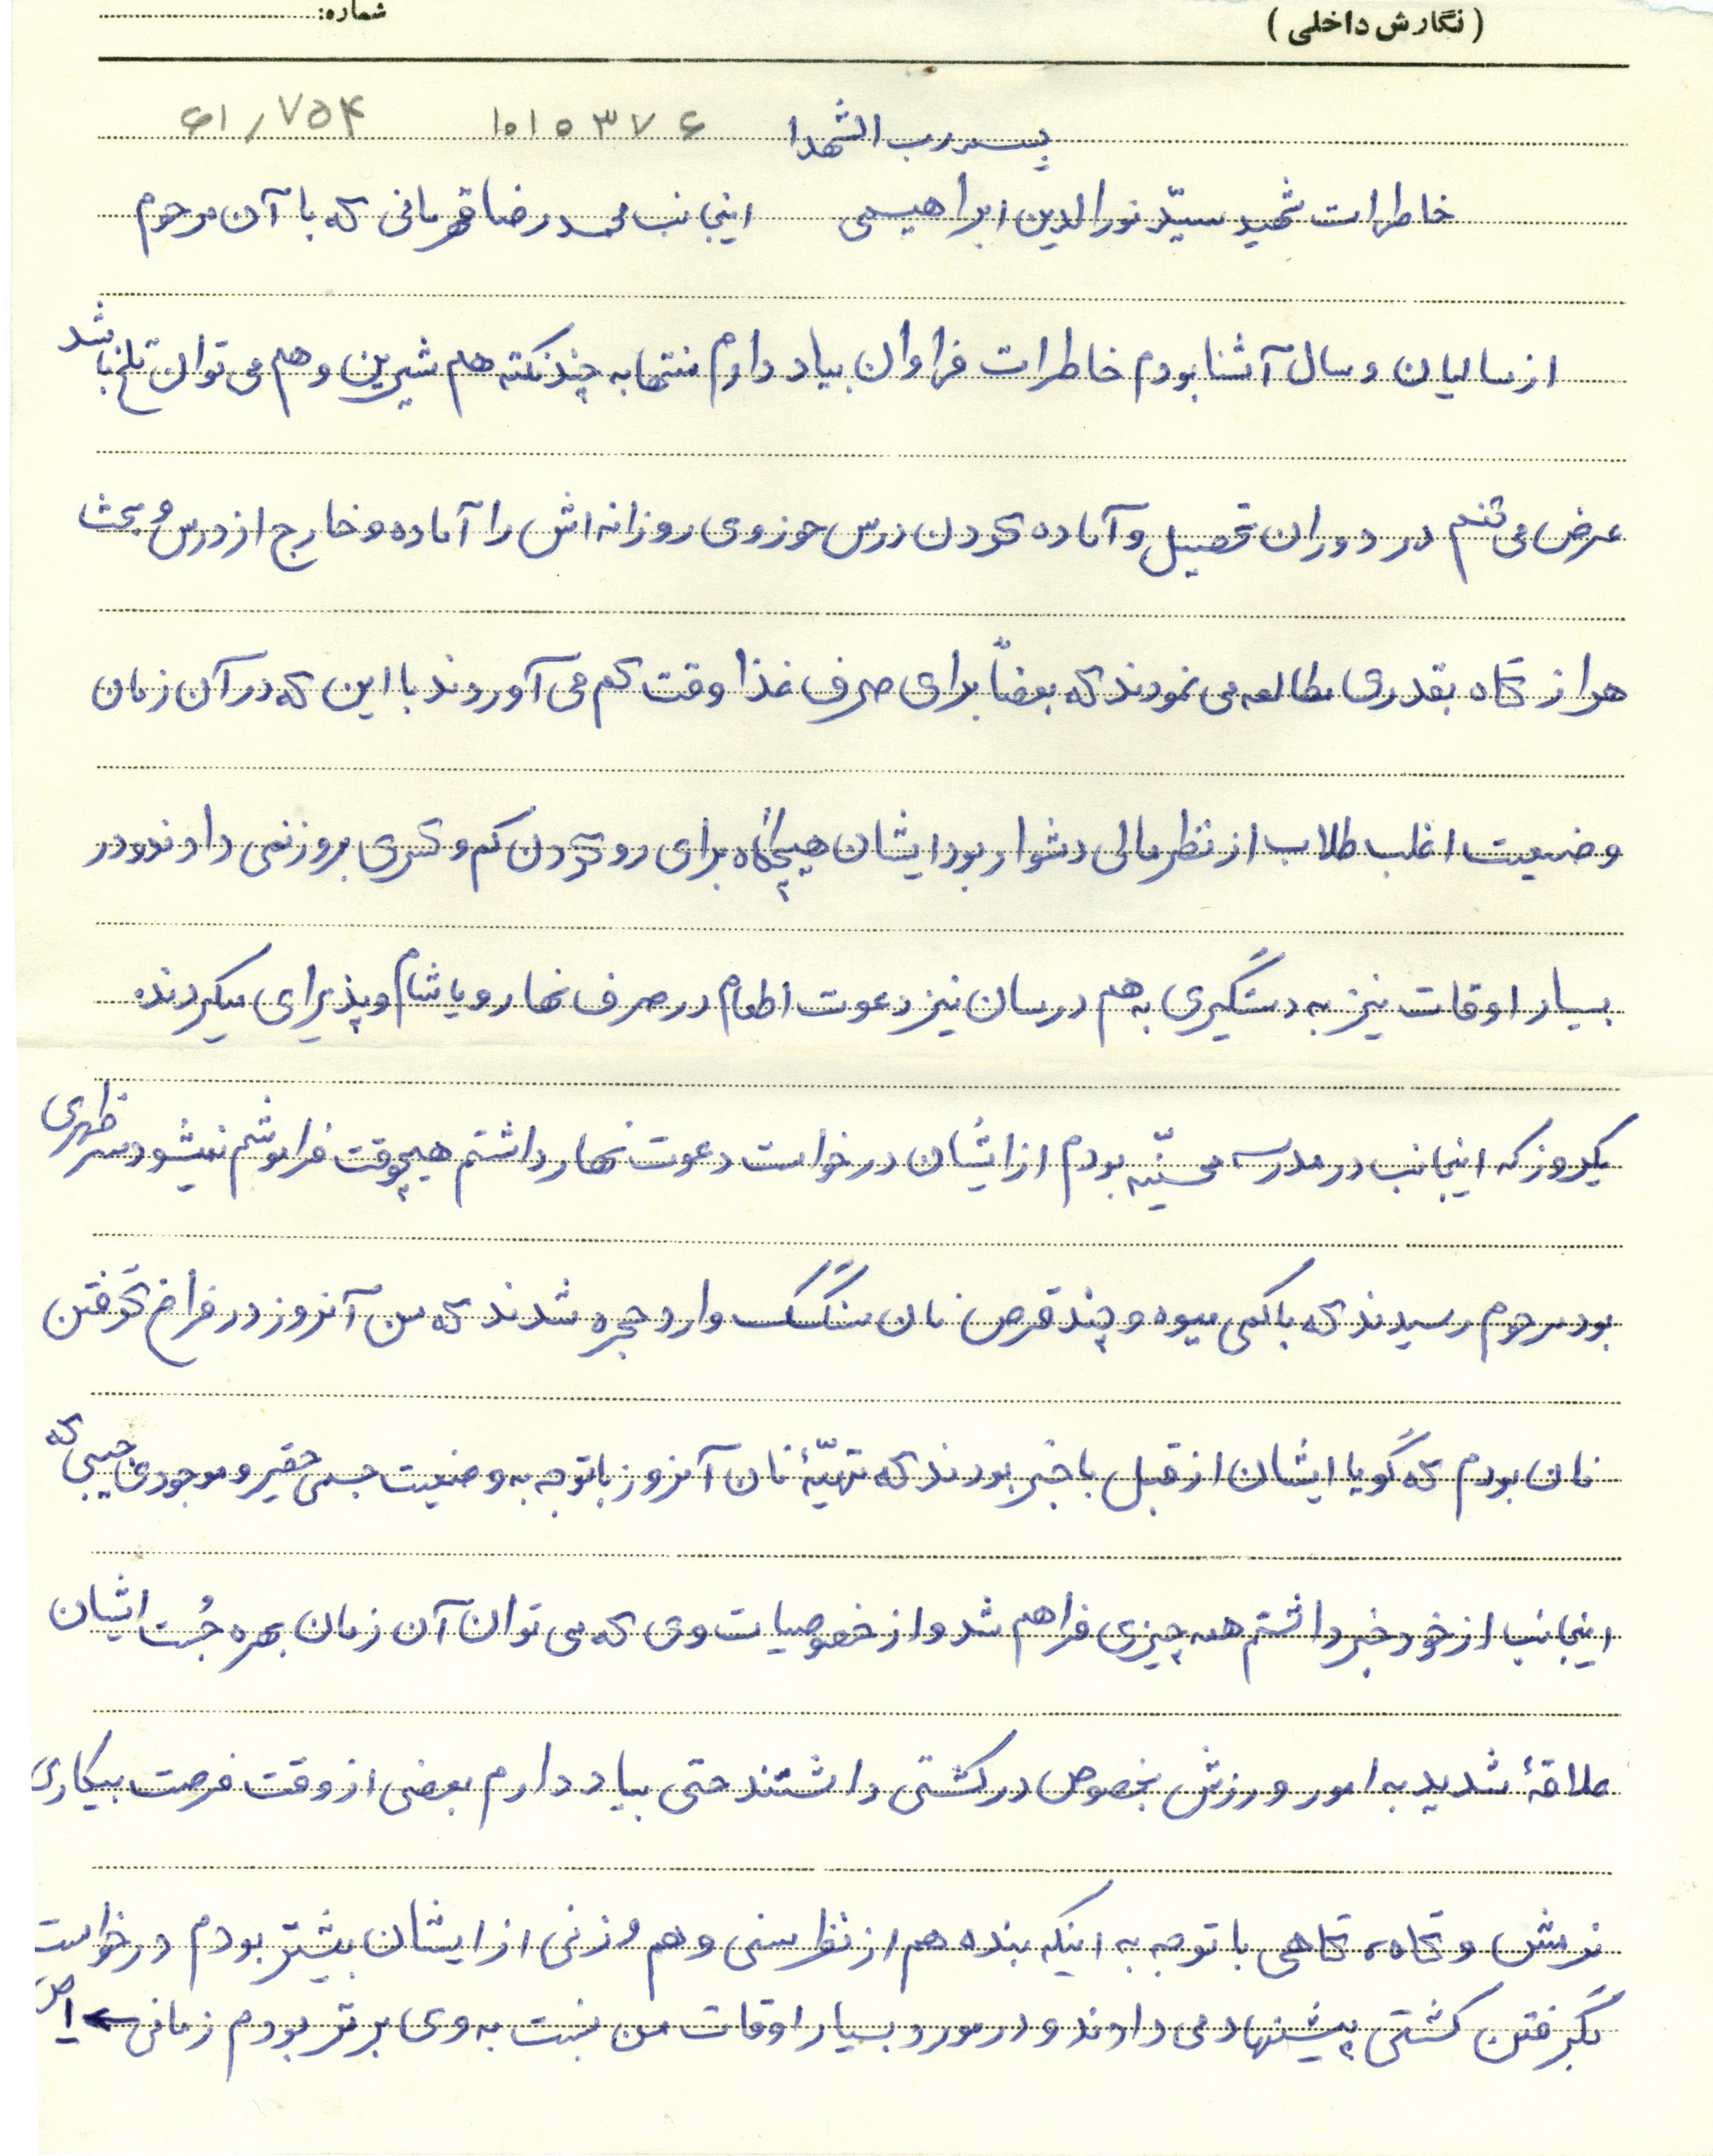 (نگارش داخلی) شماره:
بسمه رب الشهدا ۱۰۱۵۳۷۶ ۶۱/۷۵۴
خاطرات شهید سیّد نورالدین ابراهیمی اینجانب محمدرضا قهرمانی که با آن مرحوم
از سالیان و سال آشنا بودم خاطرات فراوان بیاد دارم منتها به چند نکته هم شیرین و هم می توان تلخ باشد
عرض می کنم در دوران تحصیل و آماده کردن درس حوزوی روزانه اش را آماده و خارج از درس و بحث
هر از گاه بقدری مطالعه می نمودند که بعضاً برای صرف غذا وقت کم می آوردند با این که در آن زمان
وضعیت اغلب طلاب از نظر مالی دشوار بود ایشان هیچگاه برای رو کردن کم و کسری بروز نمی دادند و در
بسیار اوقات نیز به دستگیری به هم درسان نیز دعوت اطعام در صرف نهار و یا شام و پذیرای میکردند
یکروز که اینجانب در مدرسه محسنیّه بودم از ایشان درخواست دعوت نهار داشتم هیچوقت فراموشم نمیشود سر ظهری
بود مرحوم رسیدند که با کمی میوه و چند قرص نان سنگک وارد حجره شدند که من آنروز در فراخ گرفتن
نان بودم که گویا ایشان از قبل با خبر بودند که تهیّۀ نان آنروز با توجه به وضعیت جسمی حقیر و موجودی جیبی که
اینجانب از خود خبر داشتم همه چیزی فراهم شد و از خصوصیات وی که می توان آن زمان بهره جُست ایشان
علاقۀ شدید به امور ورزش بخصوص در کشتی داشتند حتی بیاد دارم بعضی از وقت فرصت بیکاری
نرمش و گاه، گاهی با توجه به اینکه بنده هم از نظر سنی و هم وزنی از ایشان بیشتر بودم درخواست
گرفتن کشتی پیشنهاد می دادند و در مورد بسیار اوقات من نسبت به وی برتر بودم زمانی ←